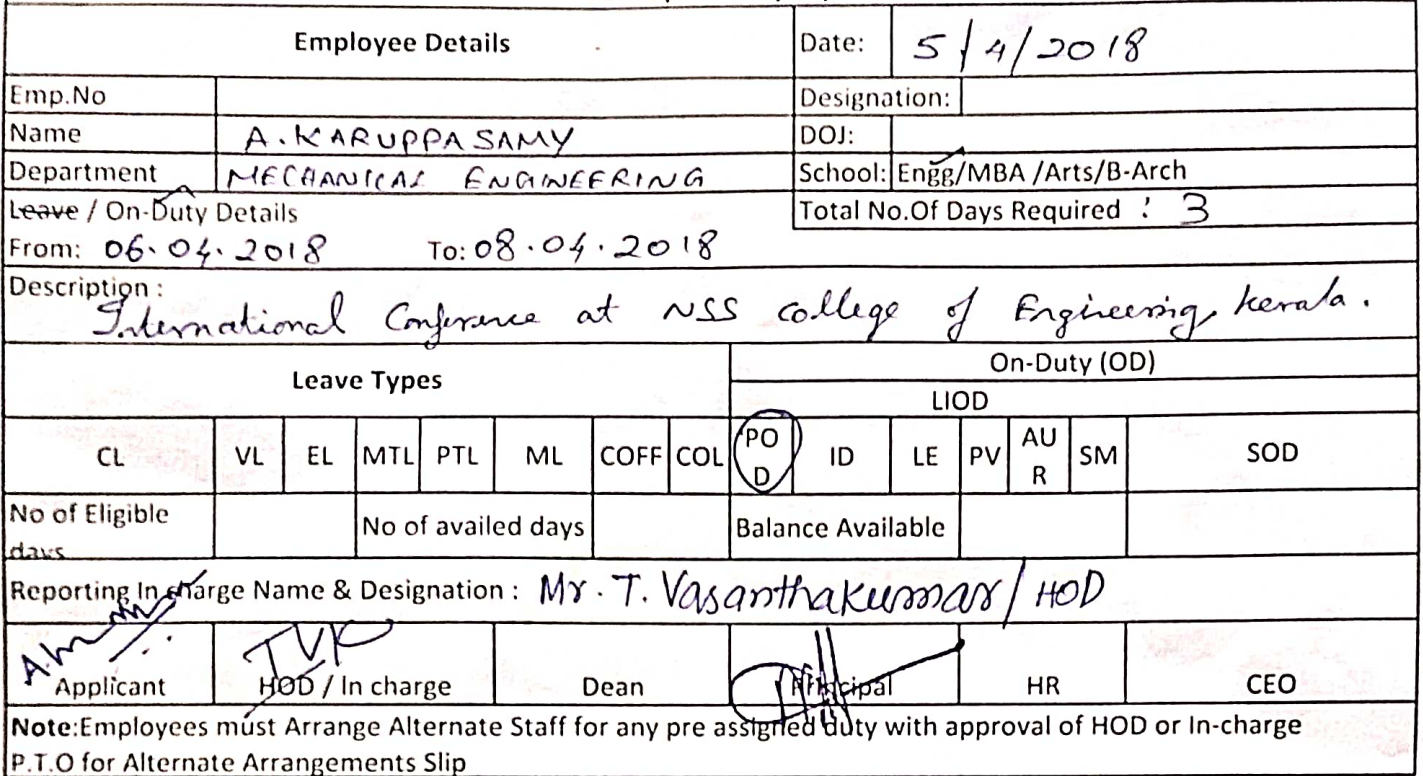 Employee Details Date: 5/4/2018
Emp.No Designation:
Name A. KARUPPASAMY DOJ:
Department MECHANICAL ENGINEERING School: Engg/MBA /Arts/B-Arch
Leave / On-Duty Details Total No.Of Days Required : 3
From: 06.04.2018 To: 08.04.2018
Description :
International Conference at NSS College of Engineering, Kerala.
Leave Types On-Duty (OD)
LIOD
CL VL EL MTL PTL ML COFF COL POD ID LE PV AUR SM SOD
No of Eligible days No of availed days Balance Available
Reporting In charge Name & Designation : Mr. T. Vasanthakumar / HOD
TVK
Applicant HOD / In charge Dean Principal HR CEO
Note:Employees must Arrange Alternate Staff for any pre assigned duty with approval of HOD or In-charge
P.T.O for Alternate Arrangements Slip